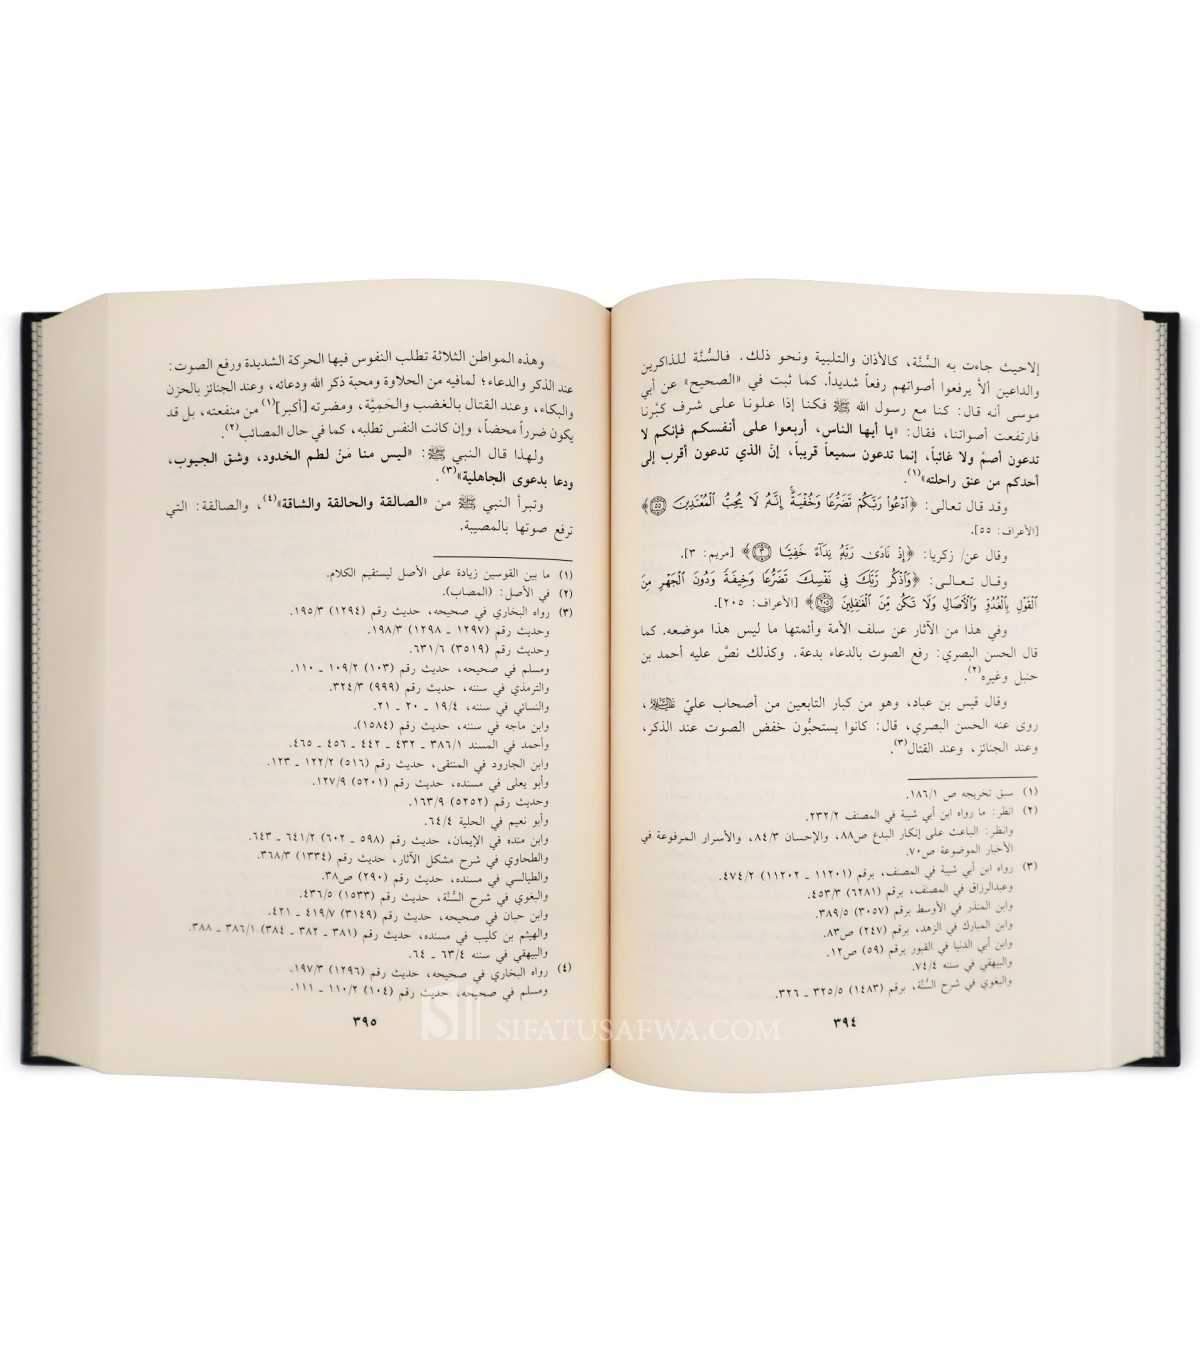 إلاحيث جاءت به السُّنَّة، كالأذان والتلبية ونحو ذلك. فالسُّنَّة للذاكرين
والداعين ألاَّ يرفعوا أصواتهم رفعاً شديداً. كما ثبت في «الصحيح» عن أبي
موسى أنه قال: كنا مع رسول الله ﷺ فكنا إذا علونا على شرف كبَّرنا
فارتفعت أصواتنا، فقال: «يا أيها الناس، أربعوا على أنفسكم فإنكم لا
تدعون أصمَّ ولا غائباً، إنما تدعون سميعاً قريباً، إنَّ الذي تدعون أقرب إلى
أحدكم من عنق راحلته»(١).
وقد قال تعالى: ﴿ٱدْعُوا۟ رَبَّكُمْ تَضَرُّعًا وَخُفْيَةً إِنَّهُۥ لَا يُحِبُّ ٱلْمُعْتَدِينَ ۝٥٥﴾
[الأعراف: ٥٥].
وقال عن/ زكريا: ﴿إِذْ نَادَىٰ رَبَّهُۥ نِدَآءً خَفِيًّا ۝٣﴾ [مريم: ٣].
وقال تعالى: ﴿وَٱذْكُر رَّبَّكَ فِى نَفْسِكَ تَضَرُّعًا وَخِيفَةً وَدُونَ ٱلْجَهْرِ مِنَ
ٱلْقَوْلِ بِٱلْغُدُوِّ وَٱلْءَاصَالِ وَلَا تَكُن مِّنَ ٱلْغَٰفِلِينَ ۝٢٠٥﴾ [الأعراف: ٢٠٥].
وفي هذا من الآثار عن سلف الأمة وأئمتها ما ليس هذا موضعه. كما
قال الحسن البصري: رفع الصوت بالدعاء بدعة. وكذلك نصَّ عليه أحمد بن
حنبل وغيره(٢).
وقال قيس بن عباد، وهو من كبار التابعين من أصحاب عليّ عليه السلام،
روى عنه الحسن البصري، قال: كانوا يستحبُّون خفض الصوت عند الذكر،
وعند الجنائز، وعند القتال(٣).
(١) سبق تخريجه ص ١٨٦/١.
(٢) انظر: ما رواه ابن أبي شيبة في المصنف ٢٣٢/٢.
وانظر: الباعث على إنكار البدع ص٨٨، والإحسان ٨٤/٣، والأسرار المرفوعة في
الأخبار الموضوعة ص٧٠.
(٣) رواه ابن أبي شيبة في المصنف، برقم (١١٢٠١ ـ ١١٢٠٢) ٤٧٤/٢.
وعبدالرزاق في المصنف، برقم (٦٢٨١) ٤٥٣/٣.
وابن المنذر في الأوسط برقم (٣٠٥٧) ٣٨٩/٥.
وابن المبارك في الزهد، برقم (٢٤٧) ص٨٣.
وابن أبي الدنيا في القبور برقم (٥٩) ص١٢.
والبيهقي في سننه ٧٤/٤.
والبغوي في شرح السُّنَّة، برقم (١٤٨٣) ٣٢٥/٥ ـ ٣٢٦.
٣٩٤
وهذه المواطن الثلاثة تطلب النفوس فيها الحركة الشديدة ورفع الصوت:
عند الذكر والدعاء؛ لمافيه من الحلاوة ومحبة ذكر الله ودعائه، وعند الجنائز بالحزن
والبكاء، وعند القتال بالغضب والحَمِيَّة، ومضرته [أكبر](١) من منفعته، بل قد
يكون ضرراً محضاً، وإن كانت النفس تطلبه، كما في حال المصائب(٢).
ولهذا قال النبي ﷺ: «ليس منا مَنْ لطم الخدود، وشق الجيوب،
ودعا بدعوى الجاهلية»(٣).
وتبرأ النبي ﷺ من «الصالقة والحالقة والشاقة»(٤)، والصالقة: التي
ترفع صوتها بالمصيبة.
(١) ما بين القوسين زيادة على الأصل ليستقيم الكلام.
(٢) في الأصل: (المصاب).
(٣) رواه البخاري في صحيحه، حديث رقم (١٢٩٤) ١٩٥/٣.
وحديث رقم (١٢٩٧ ـ ١٢٩٨) ١٩٨/٣.
وحديث رقم (٣٥١٩) ٦٣١/٦.
ومسلم في صحيحه، حديث رقم (١٠٣) ١٠٩/٢ ـ ١١٠.
والترمذي في سننه، حديث رقم (٩٩٩) ٣٢٤/٣.
والنسائي في سننه، ١٩/٤ ـ ٢٠ ـ ٢١.
وابن ماجه في سننه، حديث رقم (١٥٨٤).
وأحمد في المسند ٣٨٦/١ ـ ٤٣٢ ـ ٤٤٢ ـ ٤٥٦ ـ ٤٦٥.
وابن الجارود في المنتقى، حديث رقم (٥١٦) ١٢٢/٢ ـ ١٢٣.
وأبو يعلى في مسنده، حديث رقم (٥٢٠١) ١٢٧/٩.
وحديث رقم (٥٢٥٢) ١٦٣/٩.
وأبو نعيم في الحلية ٦٤/٤.
وابن منده في الإيمان، حديث رقم (٥٩٨ ـ ٦٠٢) ٦٤١/٢ ـ ٦٤٣.
والطحاوي في شرح مشكل الآثار، حديث رقم (١٣٣٤) ٣٦٨/٣.
والطيالسي في مسنده، حديث رقم (٢٩٠) ص٣٨.
والبغوي في شرح السُّنَّة، حديث رقم (١٥٣٣) ٤٣٦/٥.
وابن حبان في صحيحه، حديث رقم (٣١٤٩) ٤١٩/٧ ـ ٤٢١.
والهيثم بن كليب في مسنده، حديث رقم (٣٨١ ـ ٣٨٢ ـ ٣٨٤) ٣٨٦/١ ـ ٣٨٨.
والبيهقي في سننه ٦٣/٤ ـ ٦٤.
(٤) رواه البخاري في صحيحه، حديث رقم (١٢٩٦) ١٩٧/٣.
ومسلم في صحيحه، حديث رقم (١٠٤) ١١٠/٢ ـ ١١١.
٣٩٥
SIFATUSAFWA.COM